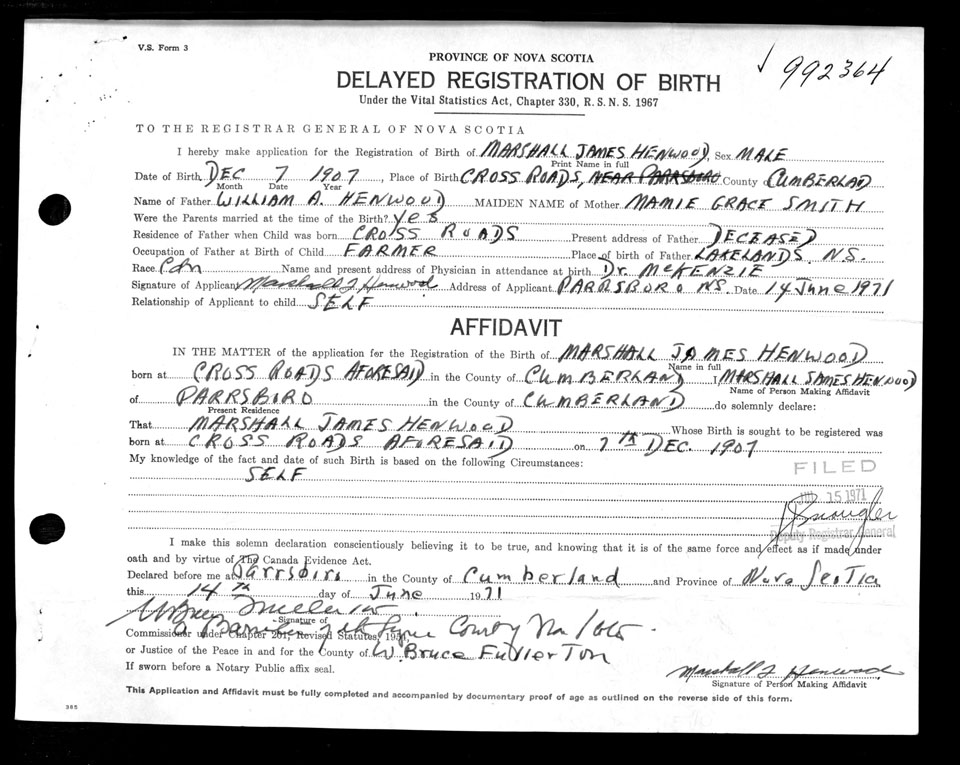 V.S. Form 3
PROVINCE OF NOVA SCOTIA
992364
DELAYED REGISTRATION OF BIRTH
Under the Vital Statistics Act, Chapter 330, R.S.N.S. 1967
TO THE REGISTRAR GENERAL OF NOVA SCOTIA
I hereby make application for the Registration of Birth of MARSHALL JAMES HENWOOD, Sex MALE
Print Name in full
Date of Birth DEC 7 1907, Place of Birth CROSS ROADS, NEAR PARRSBORO County of CUMBERLAD
Month Date Year
Name of Father WILLIAM A. HENWOOD MAIDEN NAME of Mother MAMIE GRACE SMITH
Were the Parents married at the time of the Birth? yes
Residence of Father when Child was born CROSS ROADS Present address of Father DECEASED
Occupation of Father at Birth of Child FARMER Place of birth of Father LAKELANDS, N.S.
Race Cdn Name and present address of Physician in attendance at birth Dr. McKENZIE
Signature of Applicant Marshall J Henwood Address of Applicant PARRSBORO NS. Date 14 June 1971
Relationship of Applicant to child SELF
AFFIDAVIT
IN THE MATTER of the application for the Registration of the Birth of MARSHALL JAMES HENWOOD
Name in full
born at CROSS ROADS AFORESAID in the County of CUMBERLAND I MARSHALL JAMES HENWOOD
Name of Person Making Affidavit
of PARRSBORO in the County of CUMBERLAND do solemnly declare:
Present Residence
That MARSHALL JAMES HENWOOD Whose Birth is sought to be registered was
born at CROSS ROADS AFORESAID on 7th DEC. 1907
My knowledge of the fact and date of such Birth is based on the following Circumstances:
SELF
FILED
15 1971
Deputy Registrar General
I make this solemn declaration conscientiously believing it to be true, and knowing that it is of the same force and effect as if made under
oath and by virtue of The Canada Evidence Act.
Declared before me at Parrsboro in the County of Cumberland and Province of Nova Scotia
this 14th day of June 1971
Signature of
Commissioner under Chapter 201, Revised Statutes, 195
or Justice of the Peace in and for the County of W. Bruce Fullerton
If sworn before a Notary Public affix seal.
Marshall J Henwood
Signature of Person Making Affidavit
This Application and Affidavit must be fully completed and accompanied by documentary proof of age as outlined on the reverse side of this form.
385